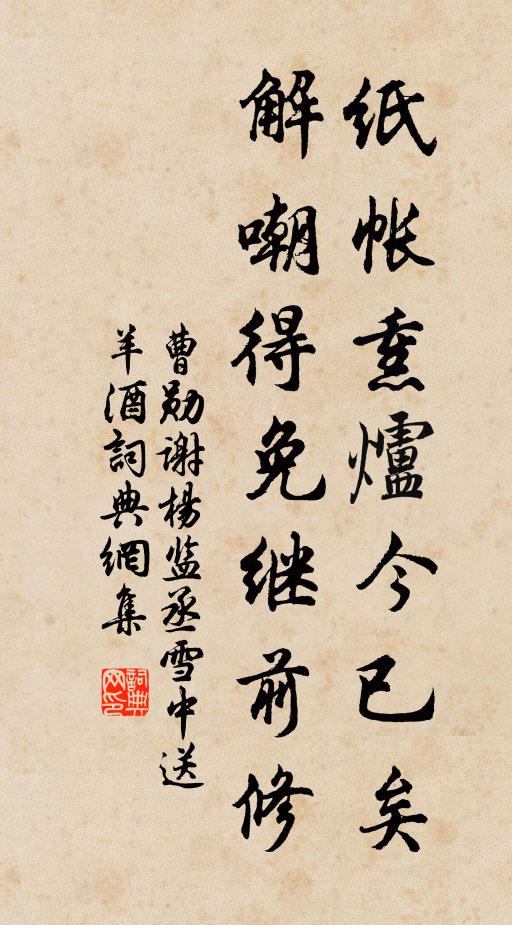 纸帐熏爐今已矣
解嘲得免继前修
曹勋谢楊监丞雪中送
羊酒詞典網集
詞典網印